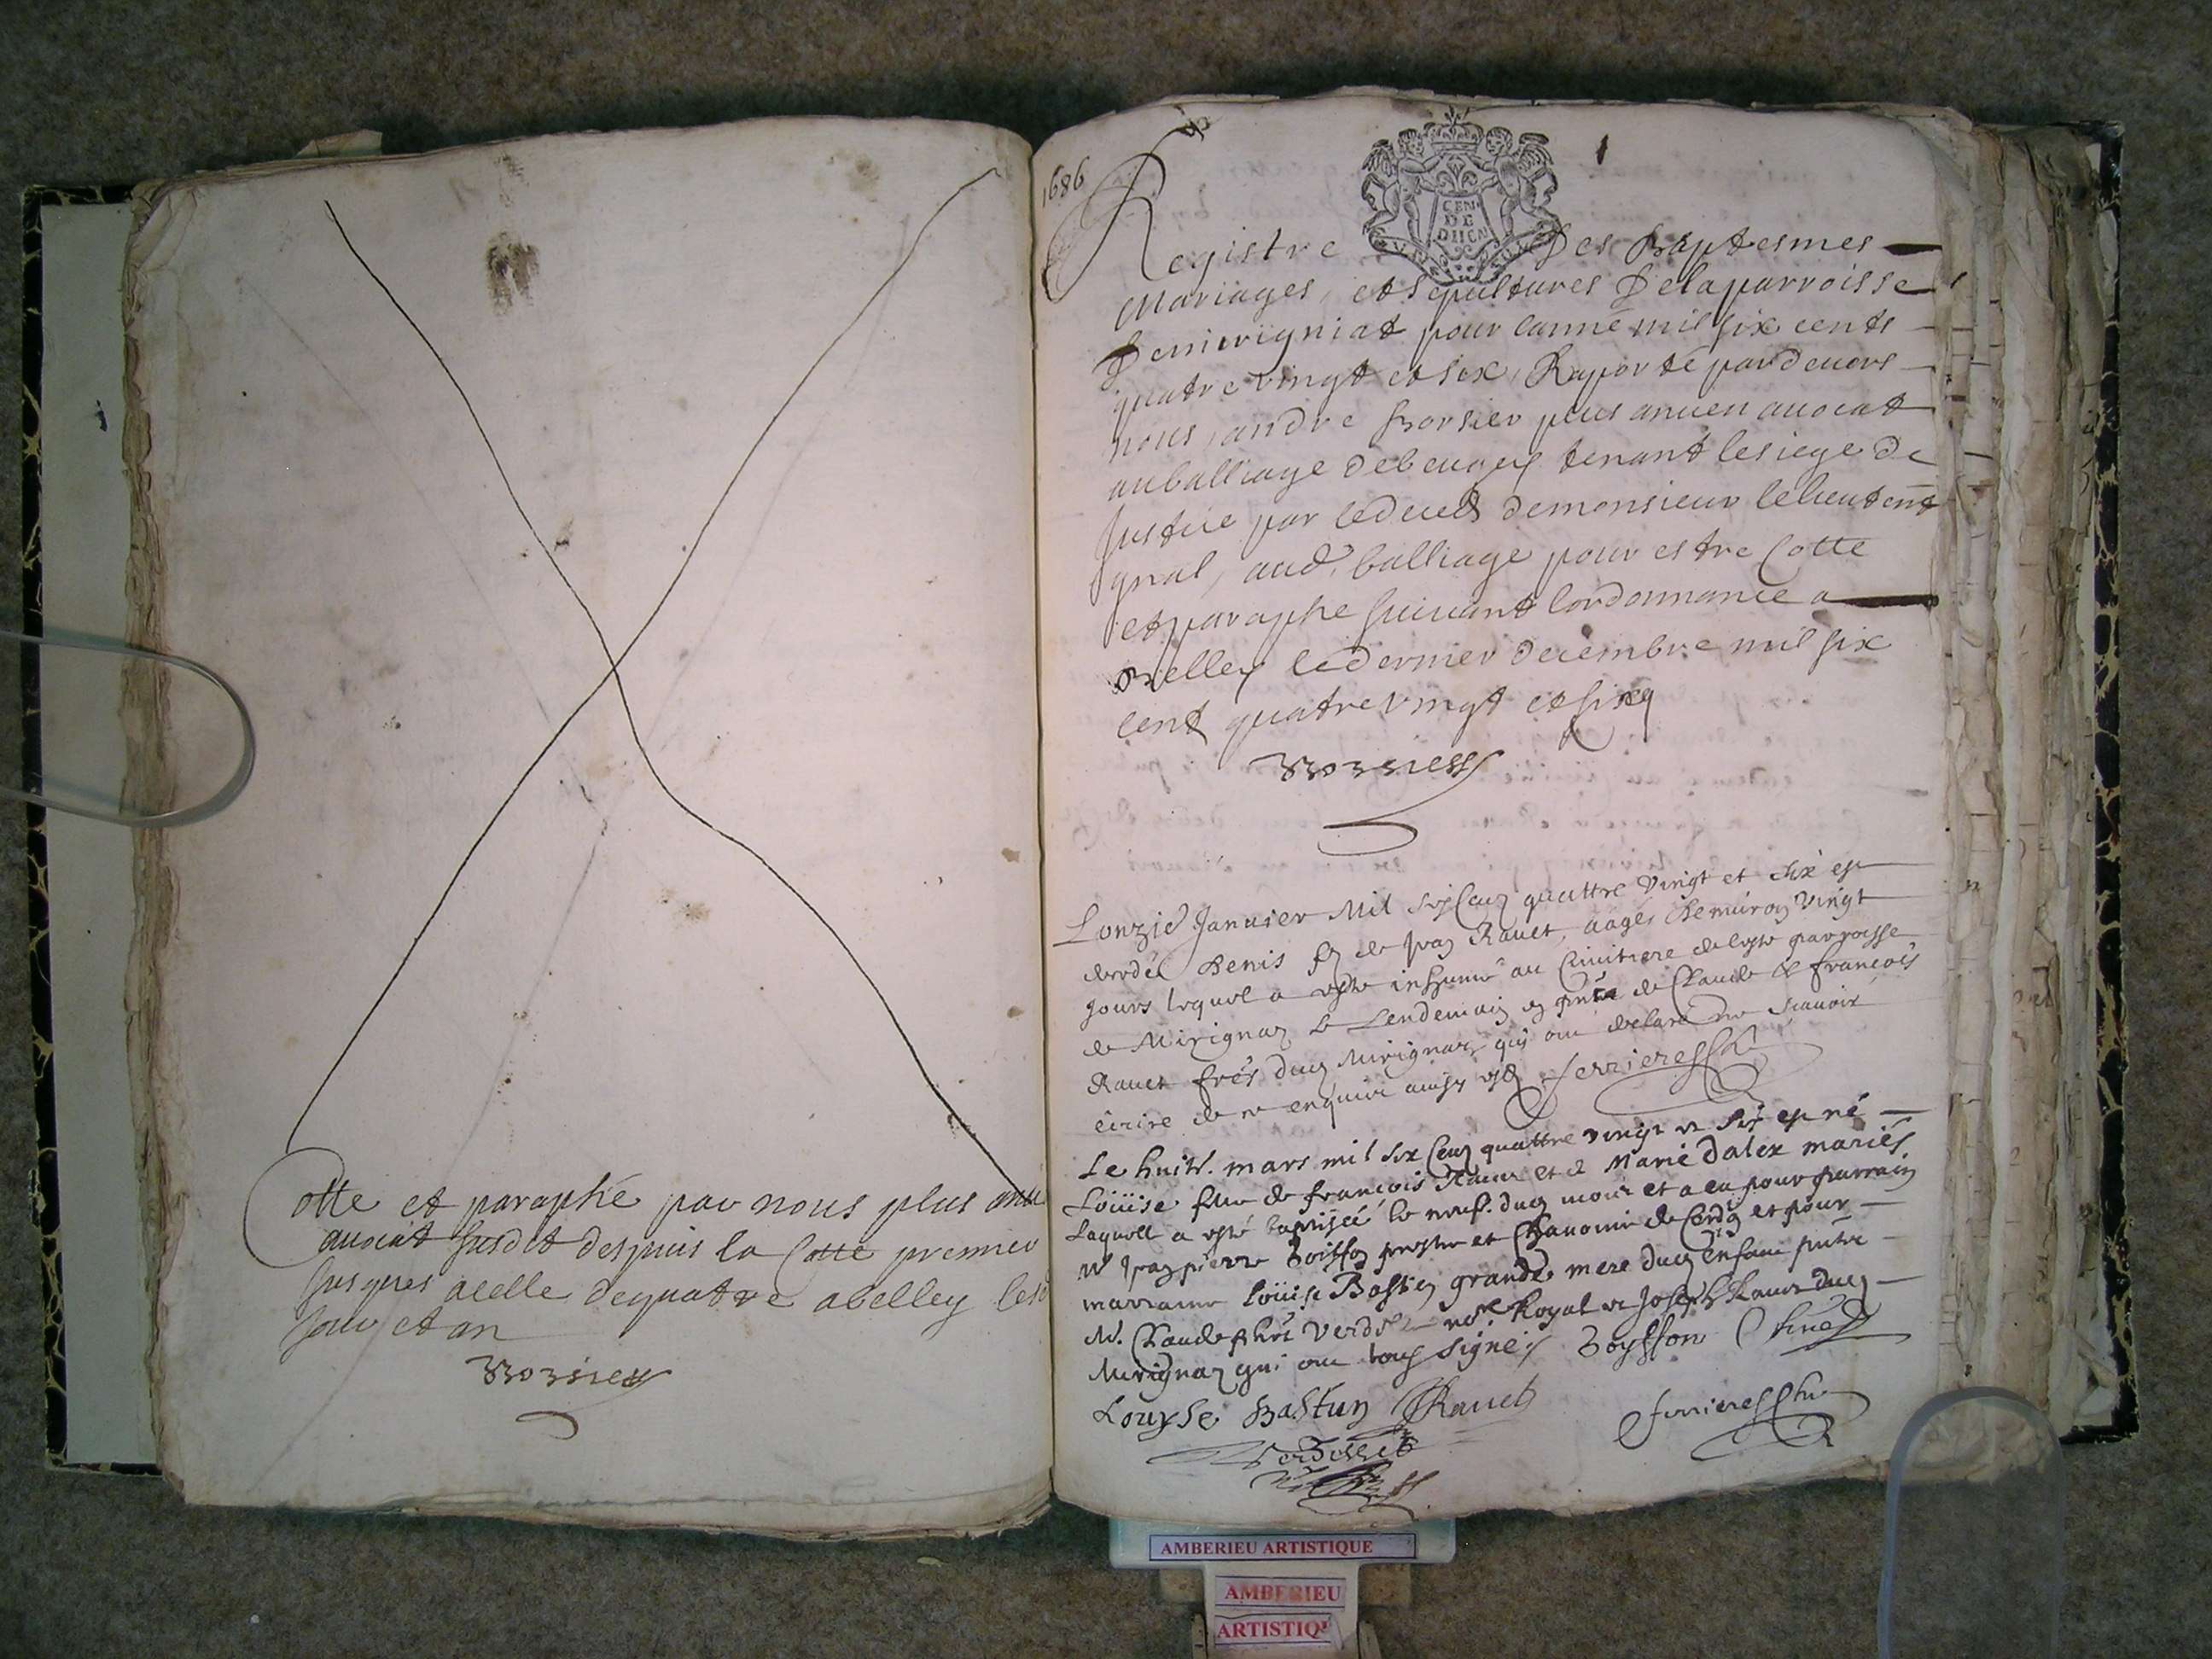 Cotte et paraphé par nous plus
auocat susdit despuis la Cotte premier
jusques acelle dequatre abelley lesd
jour et an
Borsier
1686
1
GEN
DE
DIION
Registre Des Baptesmes
Mariages, et sepultures Delaparroisse
Demirigniat pour lanné mil six cents
quatre vingt et six, Raporté pardeuers
nous, andre Borsier plus ancien auocat
auballiage debeugey tenant lesiege de
Justice par ledeced demonsieur lelieutent
gnal, aud. balliage pour estre Cotte
et paraphe suiuant lordonnance a
Belley ledernier decembre mil six
cent quatre vingt et sinq
Borsier
Lonzie Januier Mil six Cens quattre vingt et six est
decedé Denis fz de Jean Rauet, aagés denuiron vingt
jours lequel a esté inhumé au Cimitiere de cette parroisse
de Mirignaz Le Lendemain en pnce de Claude & francois
Rauet frés dud Mirignaz qui ont declaré ne scauoir
écrire de ce enquis ainsy est ferrieres
Le huit. mars mil six Cens quattre vingt et six est né
Loüise fille de francois Rauet et de Marie Dalex mariés
Laquelle a esté baptisée le neuf. dud mois et a eu pour parrain
Mr Jean pierre Boisson prestre et Chanoine de Cordon et pour
marraine Loüise Bastin grande mere dud enfant
M. Claude Verdet Royal et Joseph Rauet dud
Mirignaz qui ont tous signés Boysson
Louyse Bastin Rauet
ferrieres